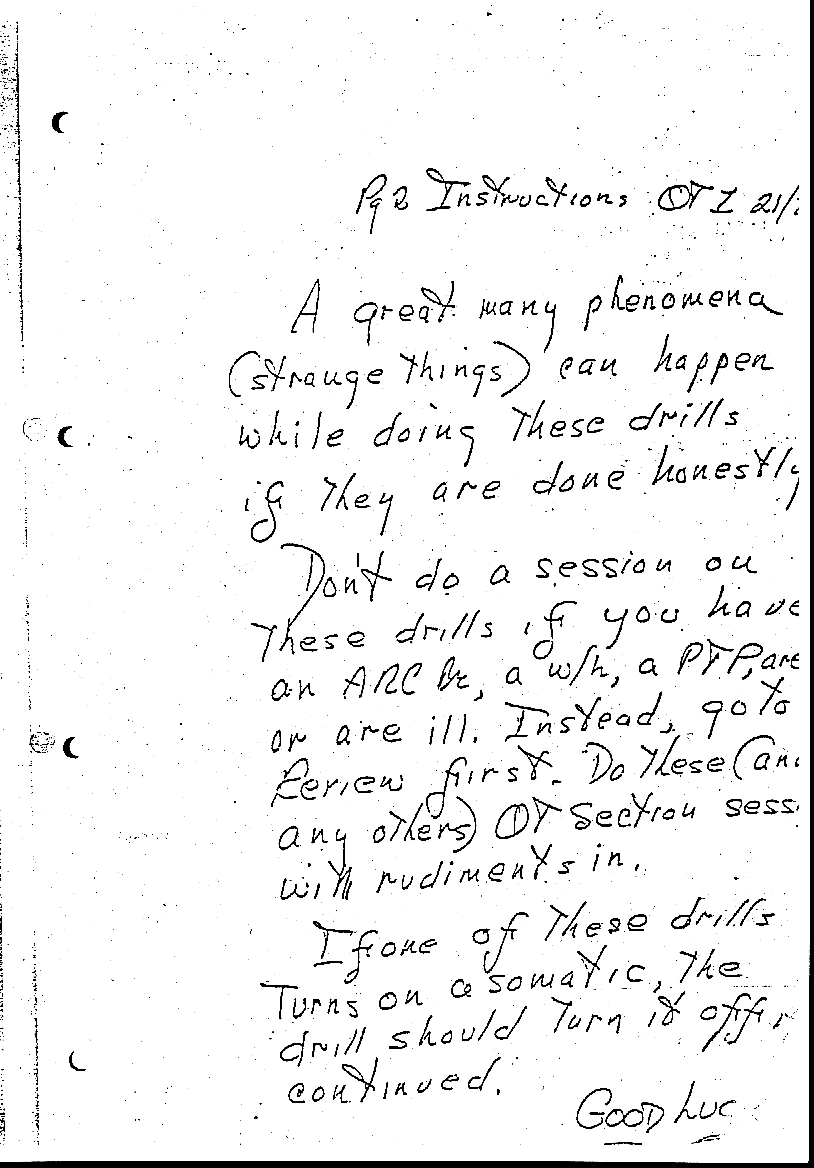 Pg 2 Instructions OT I 21/
A great many phenomena
(strange things) can happen
while doing these drills
if they are done honestly
Don't do a session on
these drills if you have
an ARC Br, a w/h, a PTP, are
or are ill. Instead, go to
Review first. Do these (an
any others) OT Section sess
with rudiments in.
If one of these drills
turns on a somatic, the
drill should turn it off if
continued.
GOOD LUC